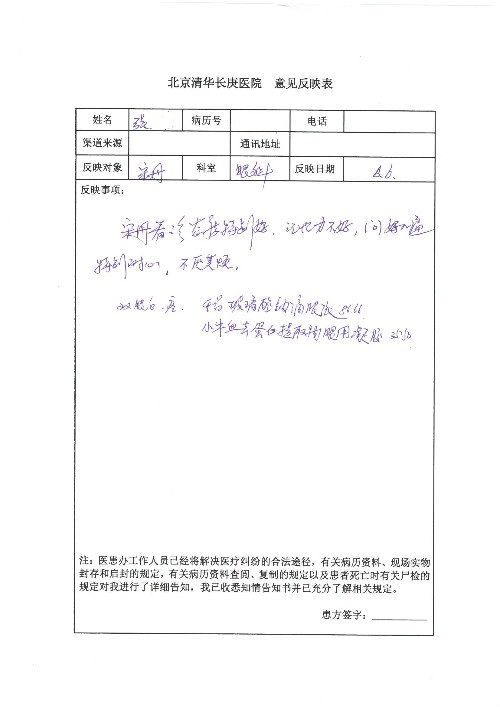 北京清华长庚医院 意见反映表
姓名 张 病历号 电话
渠道来源 通讯地址
反映对象 宋丹 科室 眼科 反映日期 4.6.
反映事项:
宋丹看 态度特别好, 记忆力不好, 问好几遍
特别耐心, 不厌其烦。
双眼白 玻璃酸钠滴眼液
小牛血去蛋白提取物眼用凝胶
注:医患办工作人员已经将解决医疗纠纷的合法途径,有关病历资料、现场实物
封存和启封的规定,有关病历资料查阅、复制的规定以及患者死亡时有关尸检的
规定对我进行了详细告知,我已收悉知情告知书并已充分了解相关规定。
患方签字: